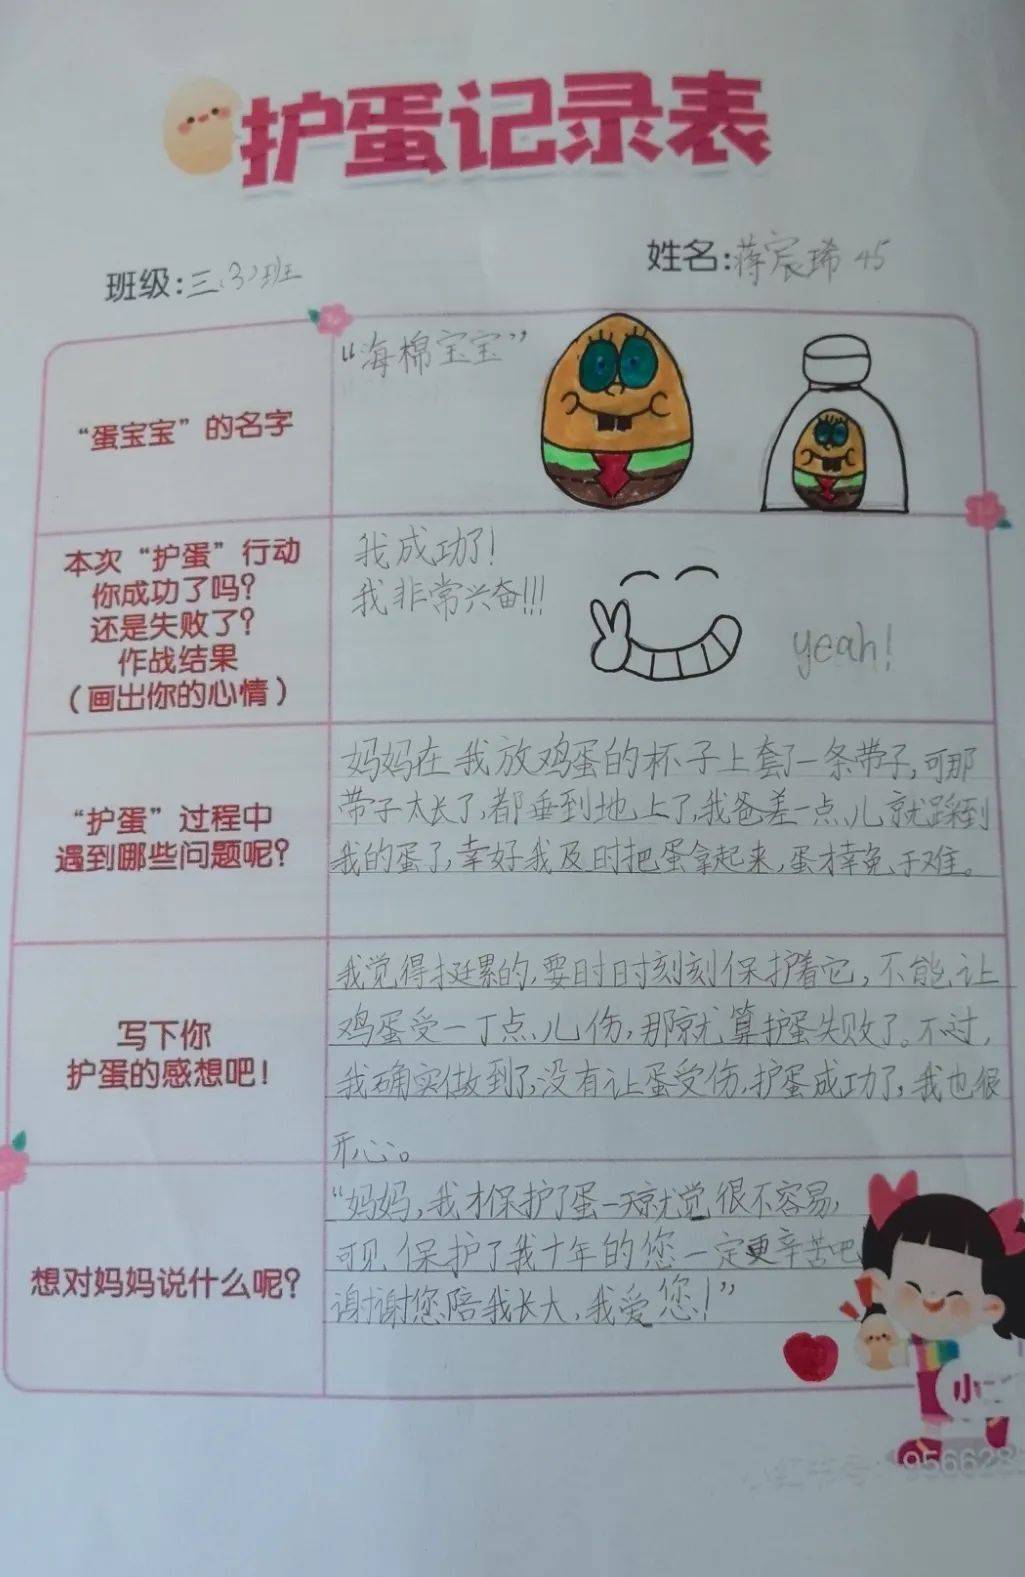 护蛋记录表
班级:三(3)班
姓名:蒋宸琋 45
“蛋宝宝”的名字
“海棉宝宝”
本次“护蛋”行动
你成功了吗?
还是失败了?
作战结果
(画出你的心情)
我成功了!
我非常兴奋!!!
yeah!
“护蛋”过程中
遇到哪些问题呢?
妈妈在我放鸡蛋的杯子上套了一条带子,可那
带子太长了,都垂到地上了,我爸差一点儿就踩到
我的蛋了,幸好我及时把蛋拿起来,蛋才幸免于难。
写下你
护蛋的感想吧!
我觉得挺累的,要时时刻刻保护着它,不能让
鸡蛋受一丁点儿伤,那就算护蛋失败了。不过,
我确实做到了,没有让蛋受伤,护蛋成功了,我也很
开心。
想对妈妈说什么呢?
“妈妈,我才保护了蛋一天就觉很不容易,
可见保护了我十年的您一定更辛苦吧
谢谢您陪我长大,我爱您!”
小
956628